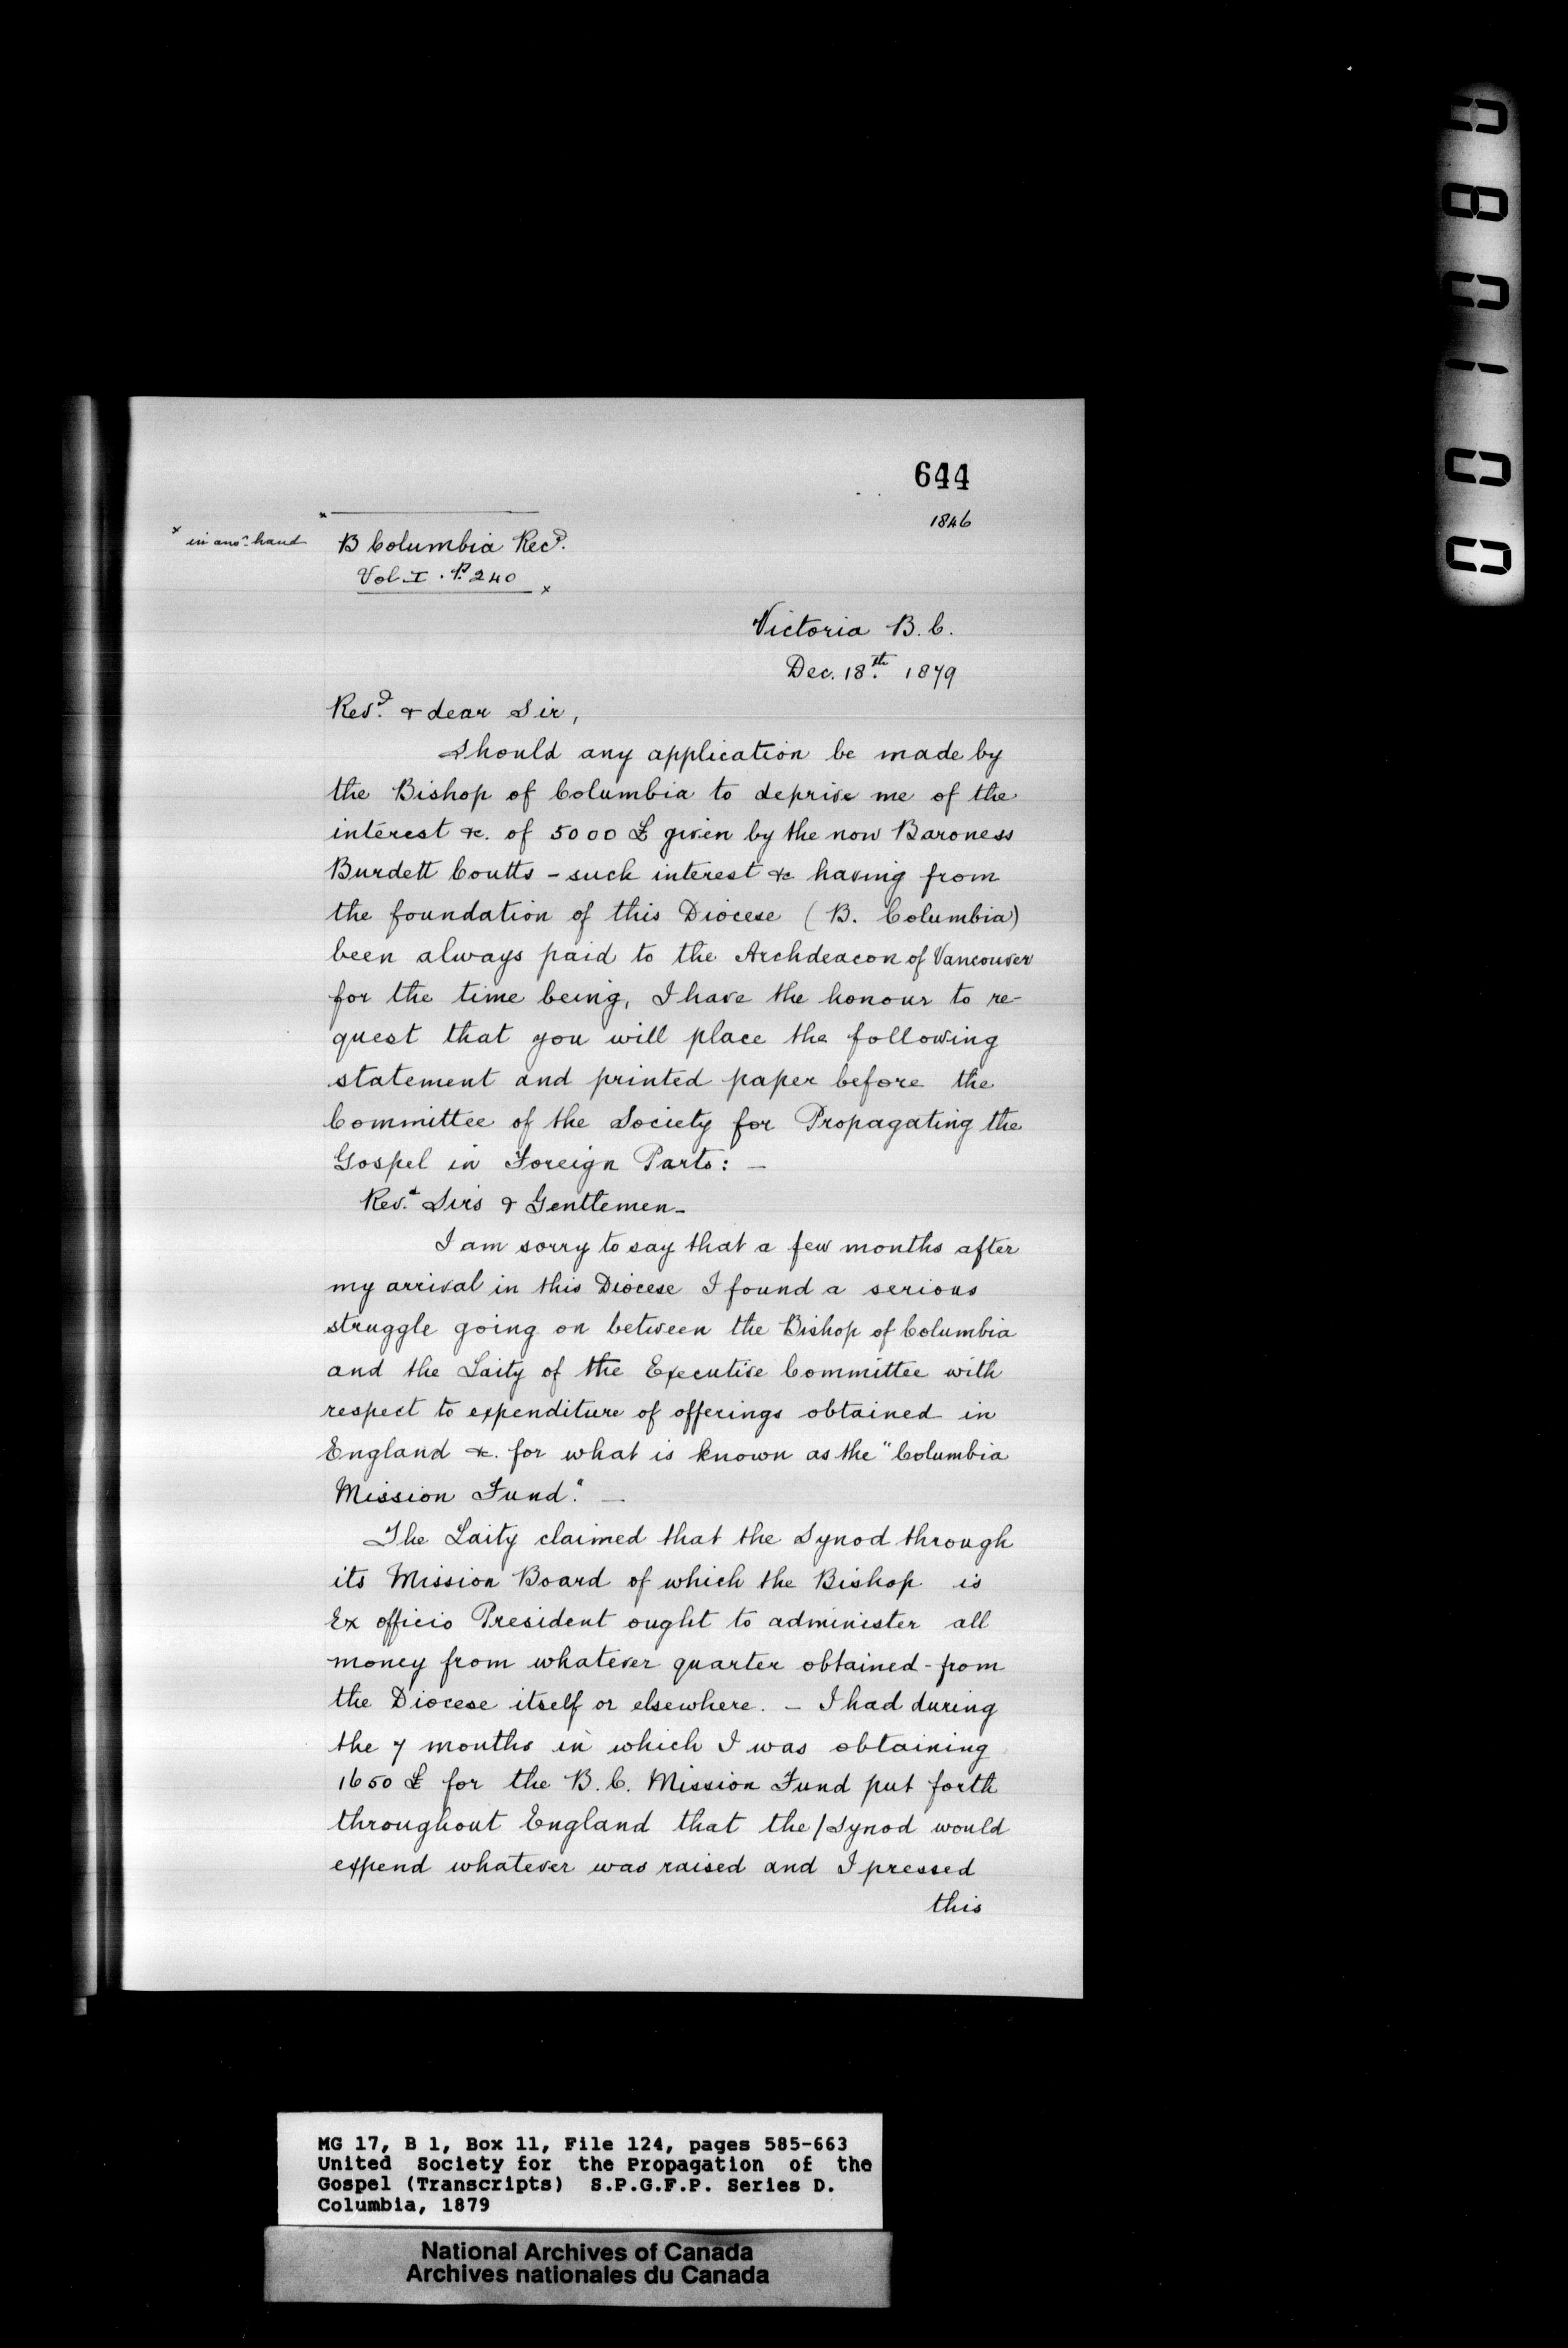 644
1846
x in anor. hand
x
B Columbia Recd.
Vol. I. P. 240 x
Victoria B.C.
Dec. 18th. 1879
Revd. & dear Sir,
Should any application be made by
the Bishop of Columbia to deprive me of the
interest &c. of 5000 £ given by the now Baroness
Burdett Coutts - such interest &c having from
the foundation of this Diocese (B. Columbia)
been always paid to the Archdeacon of Vancouver
for the time being, I have the honour to re-
quest that you will place the following
statement and printed paper before the
Committee of the Society for Propagating the
Gospel in Foreign Parts: -
Revd. Sirs & Gentlemen -
I am sorry to say that a few months after
my arrival in this Diocese I found a serious
struggle going on between the Bishop of Columbia
and the Laity of the Executive Committee with
respect to expenditure of offerings obtained in
England &c. for what is known as the "Columbia
Mission Fund". -
The Laity claimed that the Synod through
its Mission Board of which the Bishop is
Ex officio President ought to administer all
money from whatever quarter obtained - from
the Diocese itself or elsewhere. - I had during
the 7 months in which I was obtaining
1650 £ for the B.C. Mission Fund put forth
throughout England that the / Synod would
expend whatever was raised and I pressed
this
0001080
MG 17, B 1, Box 11, File 124, pages 585-663
United Society for the Propagation of the
Gospel (Transcripts) S.P.G.F.P. Series D.
Columbia, 1879
National Archives of Canada
Archives nationales du Canada